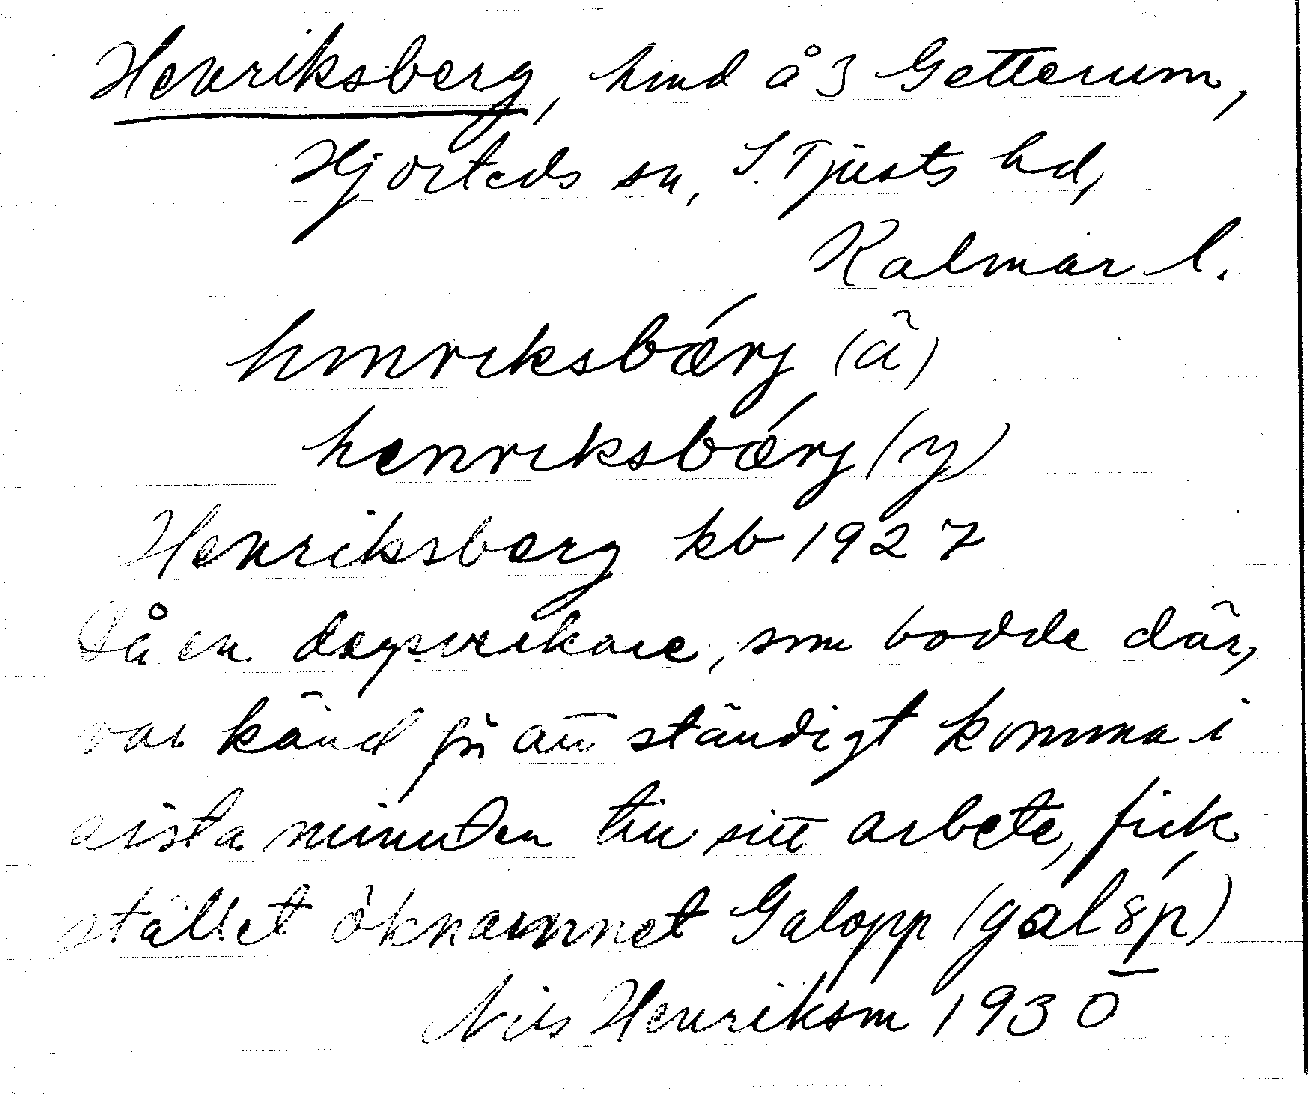 Henriksberg, hmd å 3 Getterum,
Hjorteds sn, S. Tjusts hd,
Kalmar l.
hinriksbærj (ä)
henriksbærj (y)
Henriksberg kb 1927
Då en dagsverkare, som bodde där,
var känd för att ständigt komma i
sista minuten till sitt arbete, fick
stället öknamnet Galopp
Nils Henrikson 1930